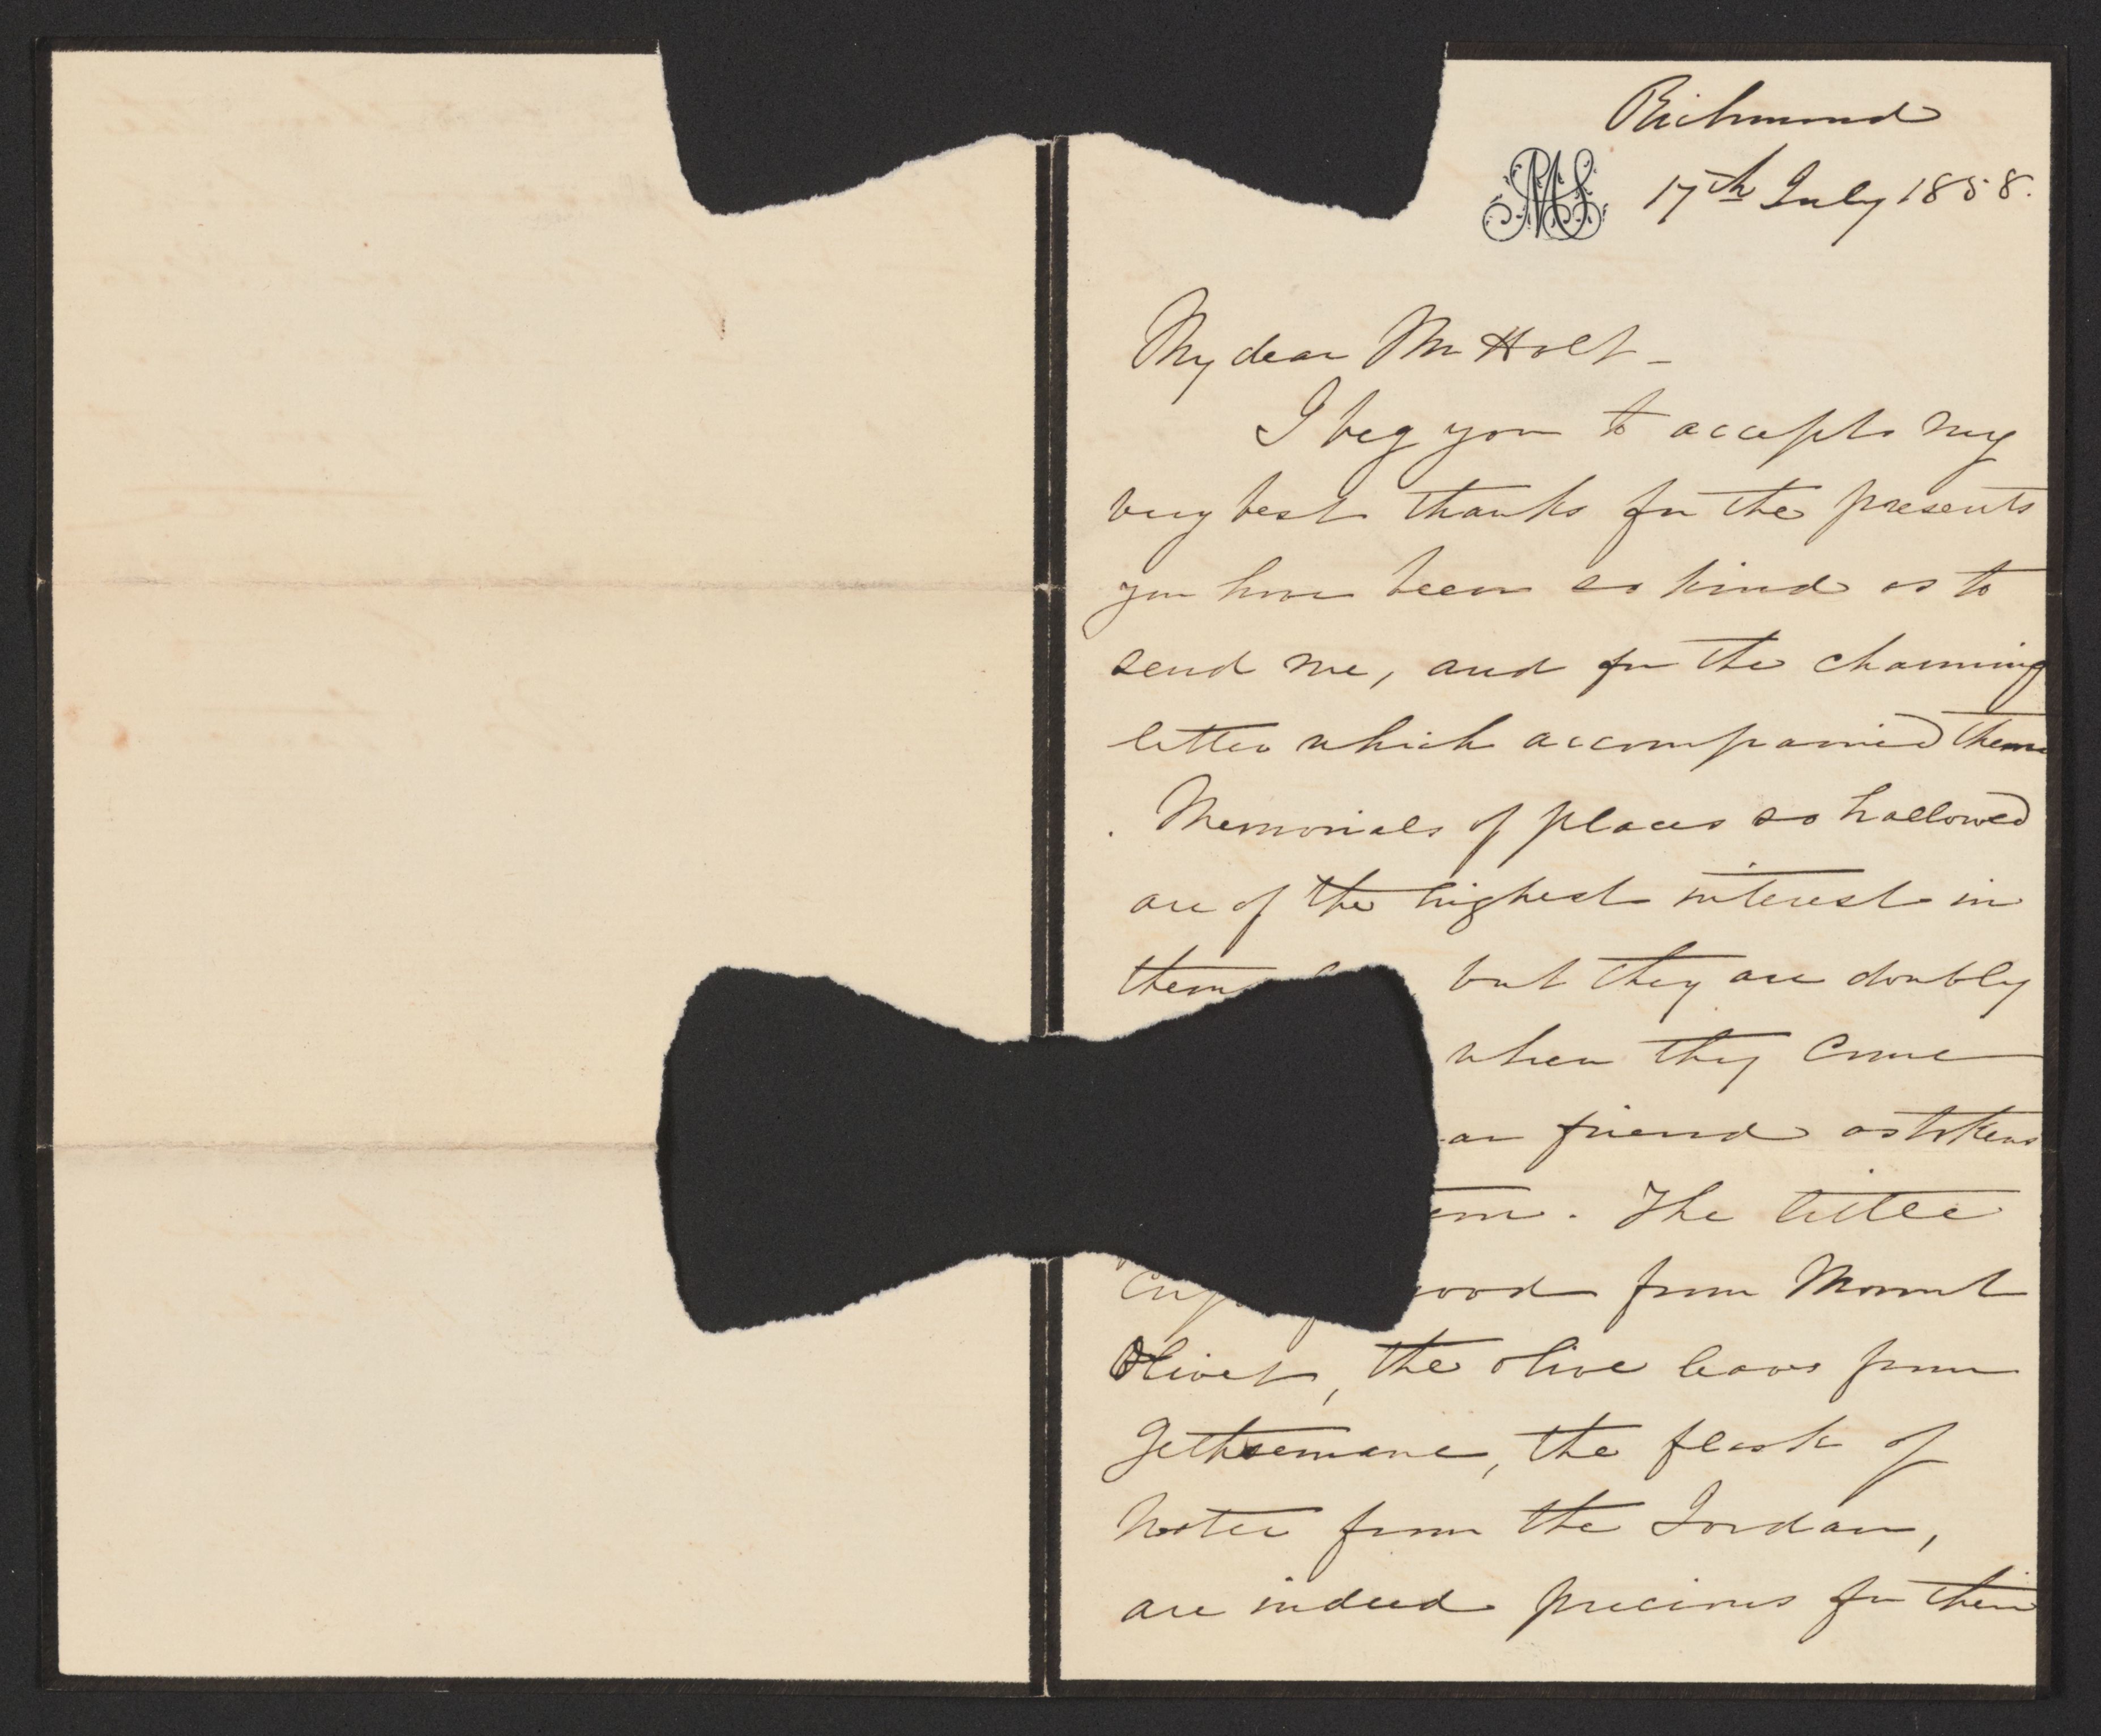 Richmond
17th July 1858.
My dear Mr Holt -
I beg you to accept my
very best thanks for the presents
you have been so kind as to
send me, and for the charming
letter which accompanied them
. Memorials of places so hallowed
are of the highest interest in
but they are doubly
when they come
friend as tokens
. The little
from Mount
Olivet, the olive leaves from
Gethsemane, the flask of
Water from the Jordan,
are indeed precious for their